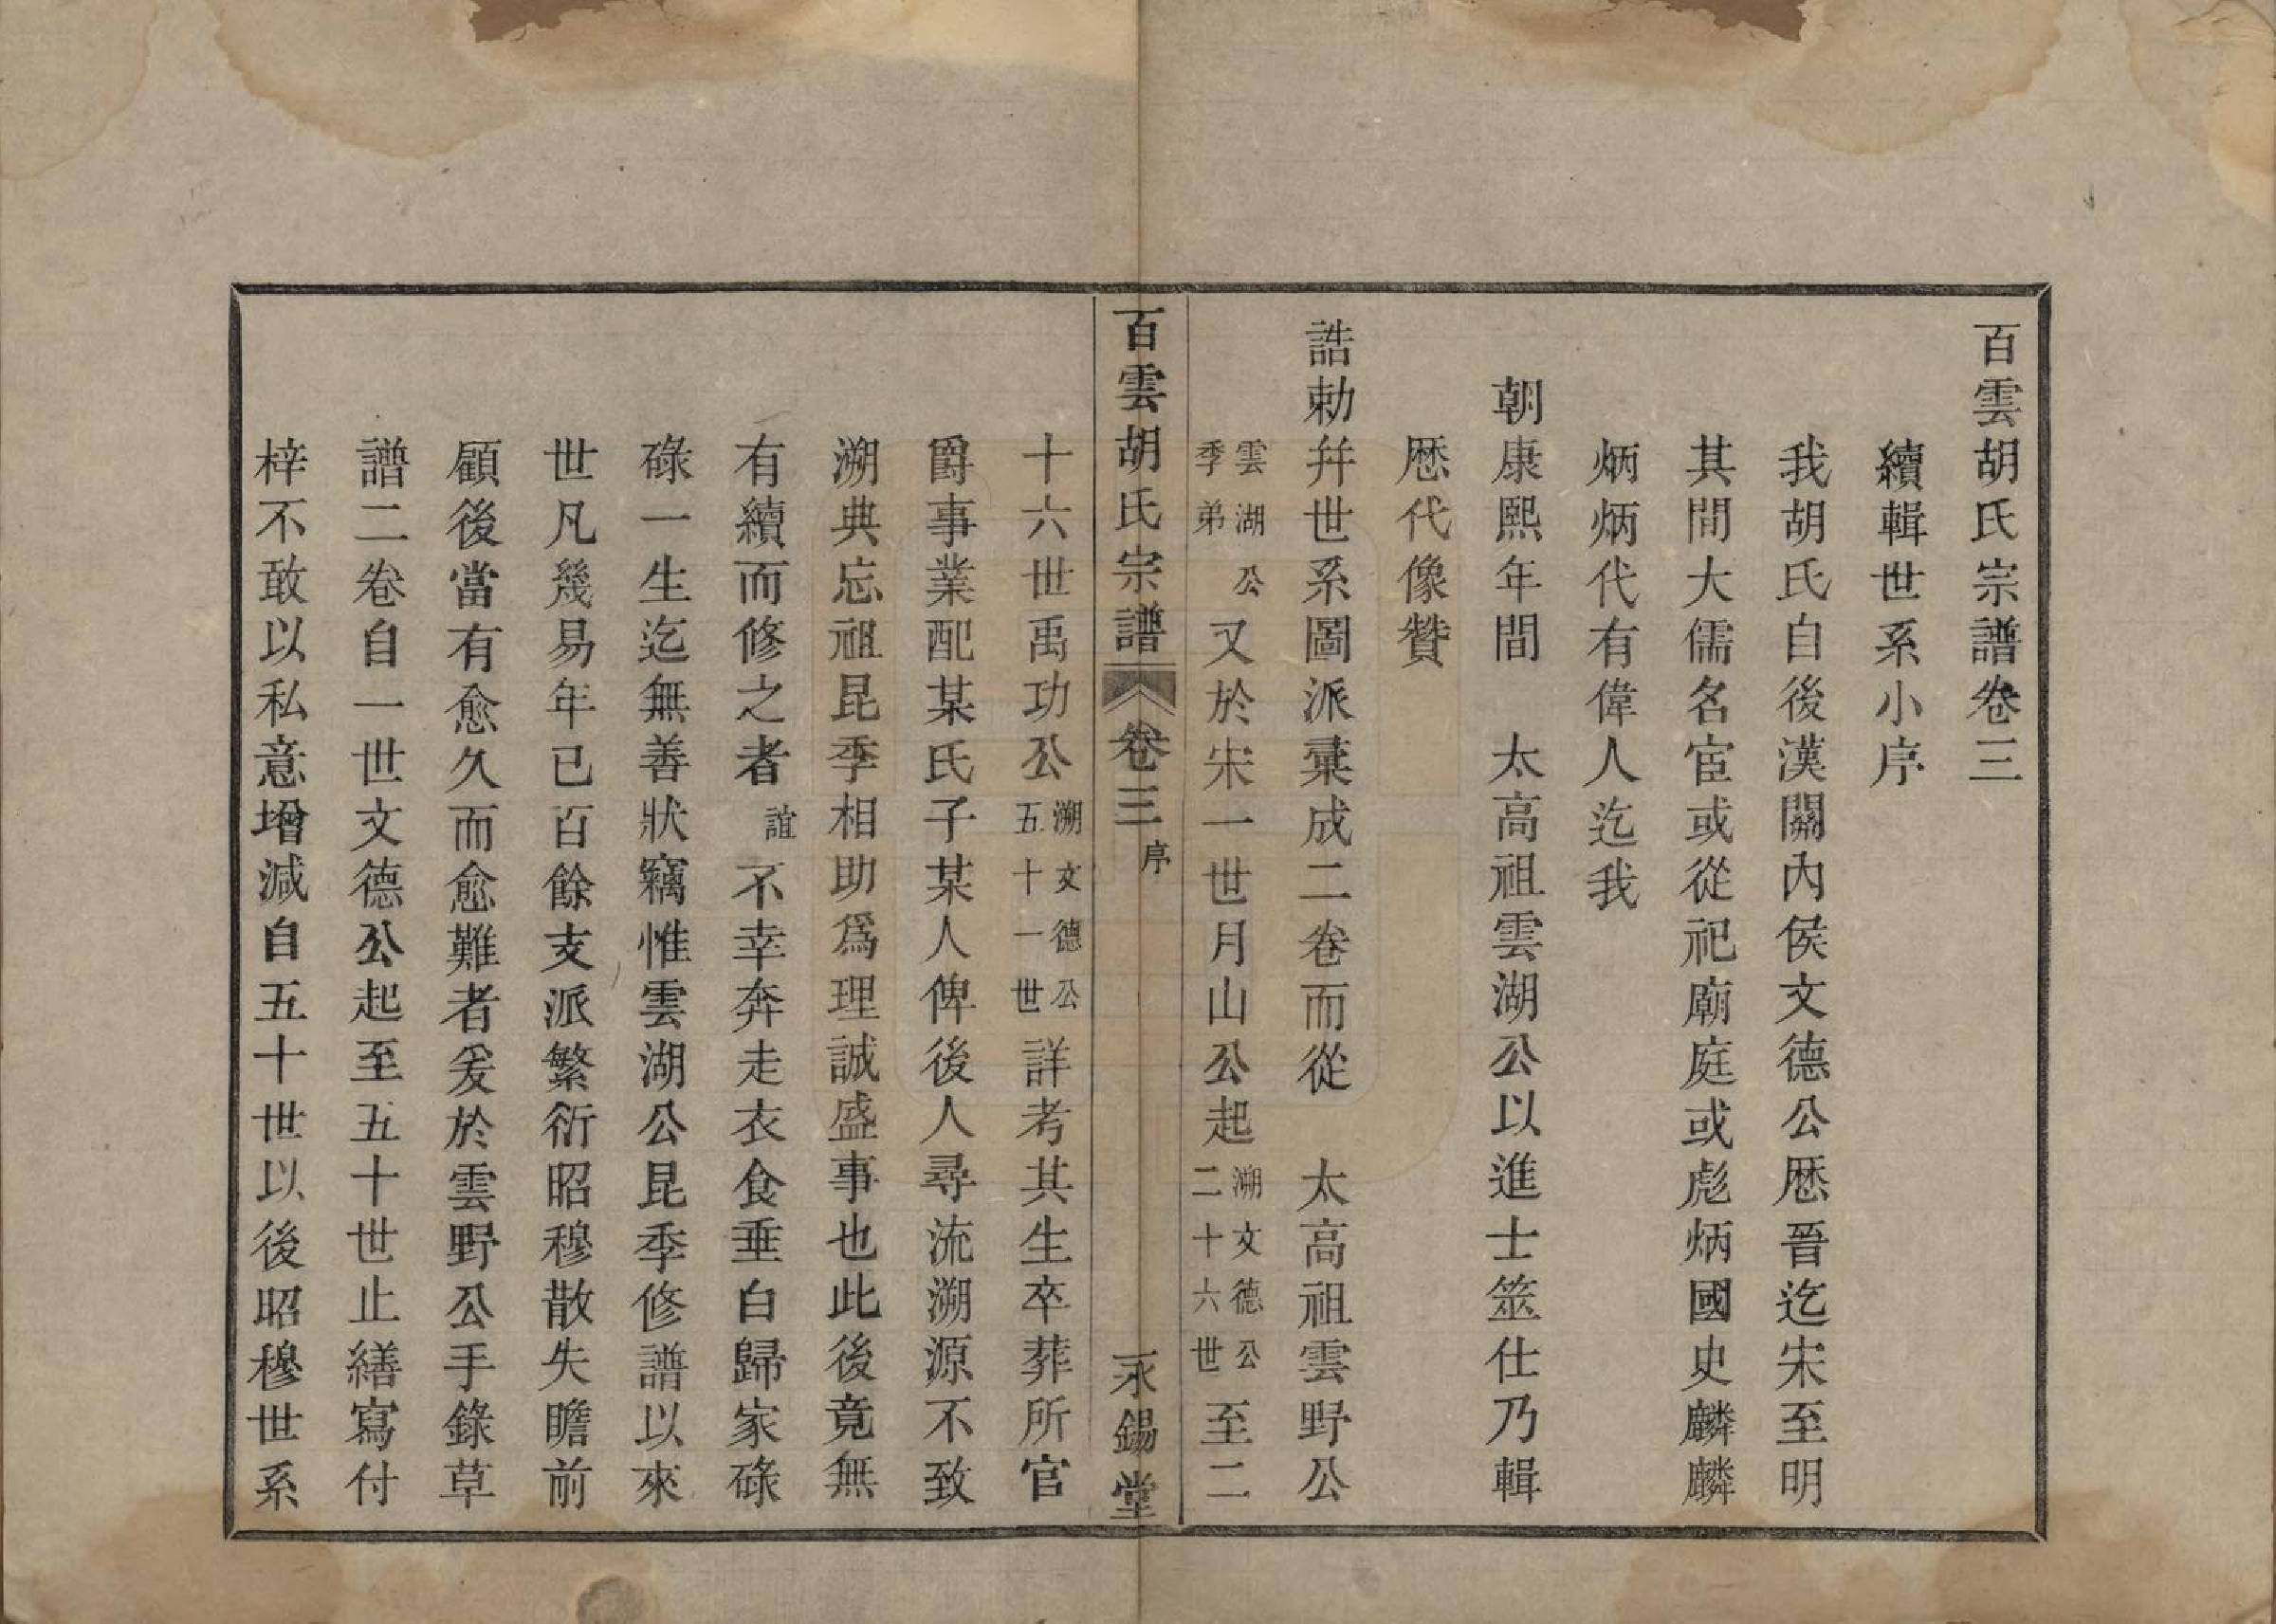 百雲胡氏宗譜卷三
續輯世系小序
我胡氏自後漢關內侯文德公歷晉迄宋至明
其間大儒名宦或從祀廟庭或彪炳國史麟麟
炳炳代有偉人迄我
朝康熙年間　太高祖雲湖公以進士筮仕乃輯
歷代像贊
誥勅幷世系圖派彙成二卷而從　太高祖雲野公
雲湖公季弟又於宋一世月山公起溯文德公二十六世至二
百雲胡氏宗譜　卷三　序　永錫堂
十六世禹功公溯文德公五十一世詳考其生卒葬所官
爵事業配某氏子某人俾後人尋流溯源不致
溯典忘祖昆季相助爲理誠盛事也此後竟無
有續而修之者誼不幸奔走衣食垂白歸家碌
碌一生迄無善狀竊惟雲湖公昆季修譜以來
世凡幾易年已百餘支派繁衍昭穆散失瞻前
顧後當有愈久而愈難者爰於雲野公手錄草
譜二卷自一世文德公起至五十世止繕寫付
梓不敢以私意增減自五十世以後昭穆世系